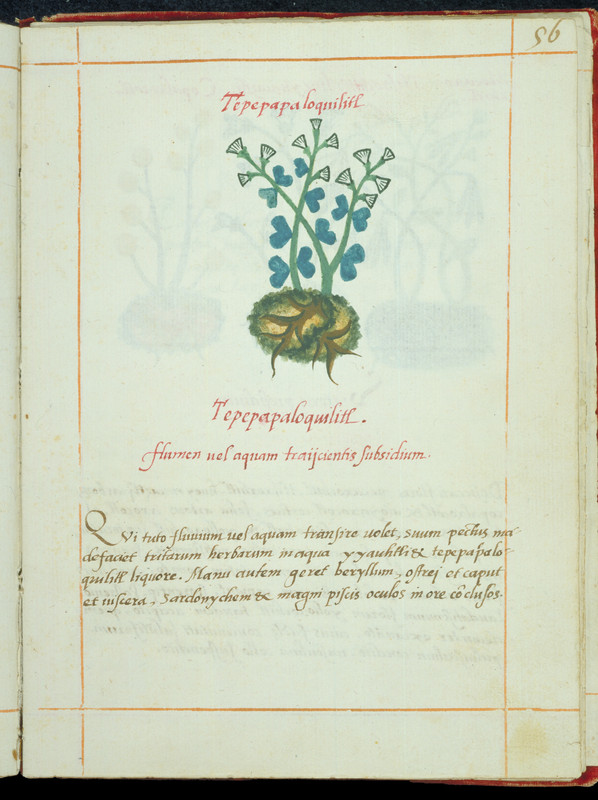 56
Tepepapaloquilitl
Tepepapaloquilitl.
flumen uel aquam traijcientis subsidium.
Qvi tuto fluuium uel aquam transire uolet, suum pectus ma-
defaciet tritarum herbarum in aqua yyauhtli & tepepapalo-
quilitl liquore. Manu autem geret beryllum, ostrei et caput
et uiscera, Sardonychem & magni piscis oculos in ore cōclusos.